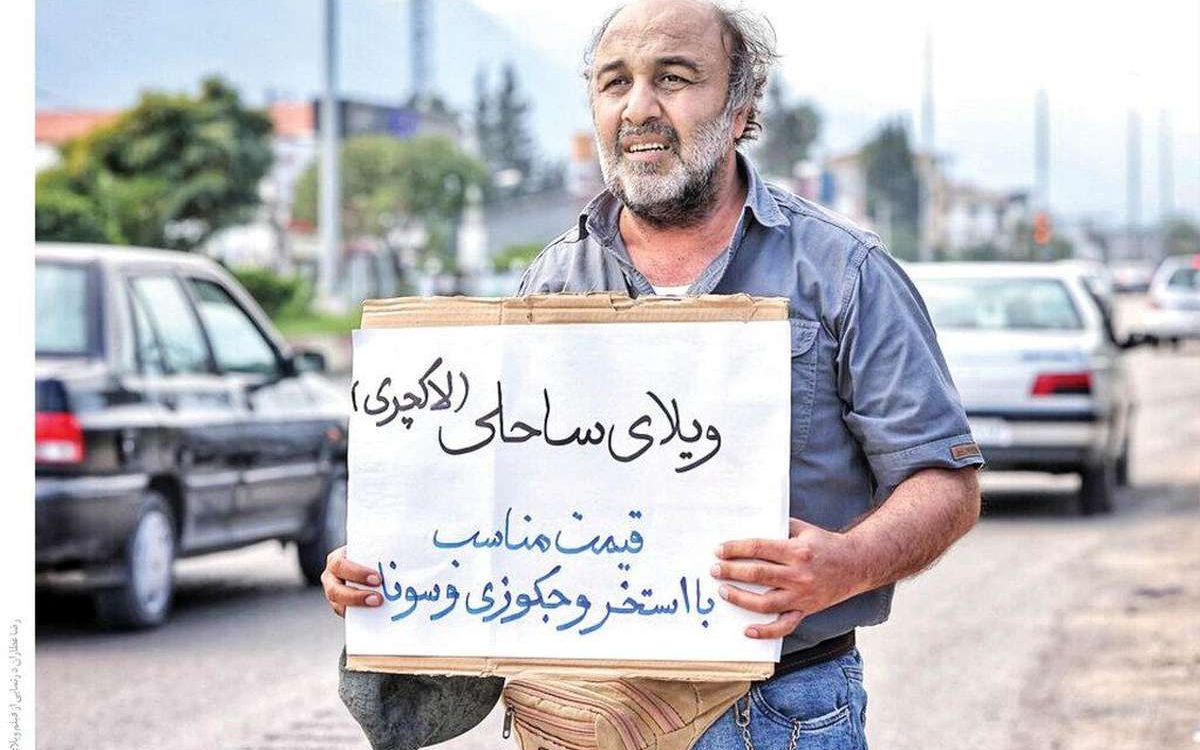 ویلای ساحلی (لاکچری)
قیمت مناسب
با استخر و جکوزی و سونا
رضا عطاران در نمایی از فیلم ویلای